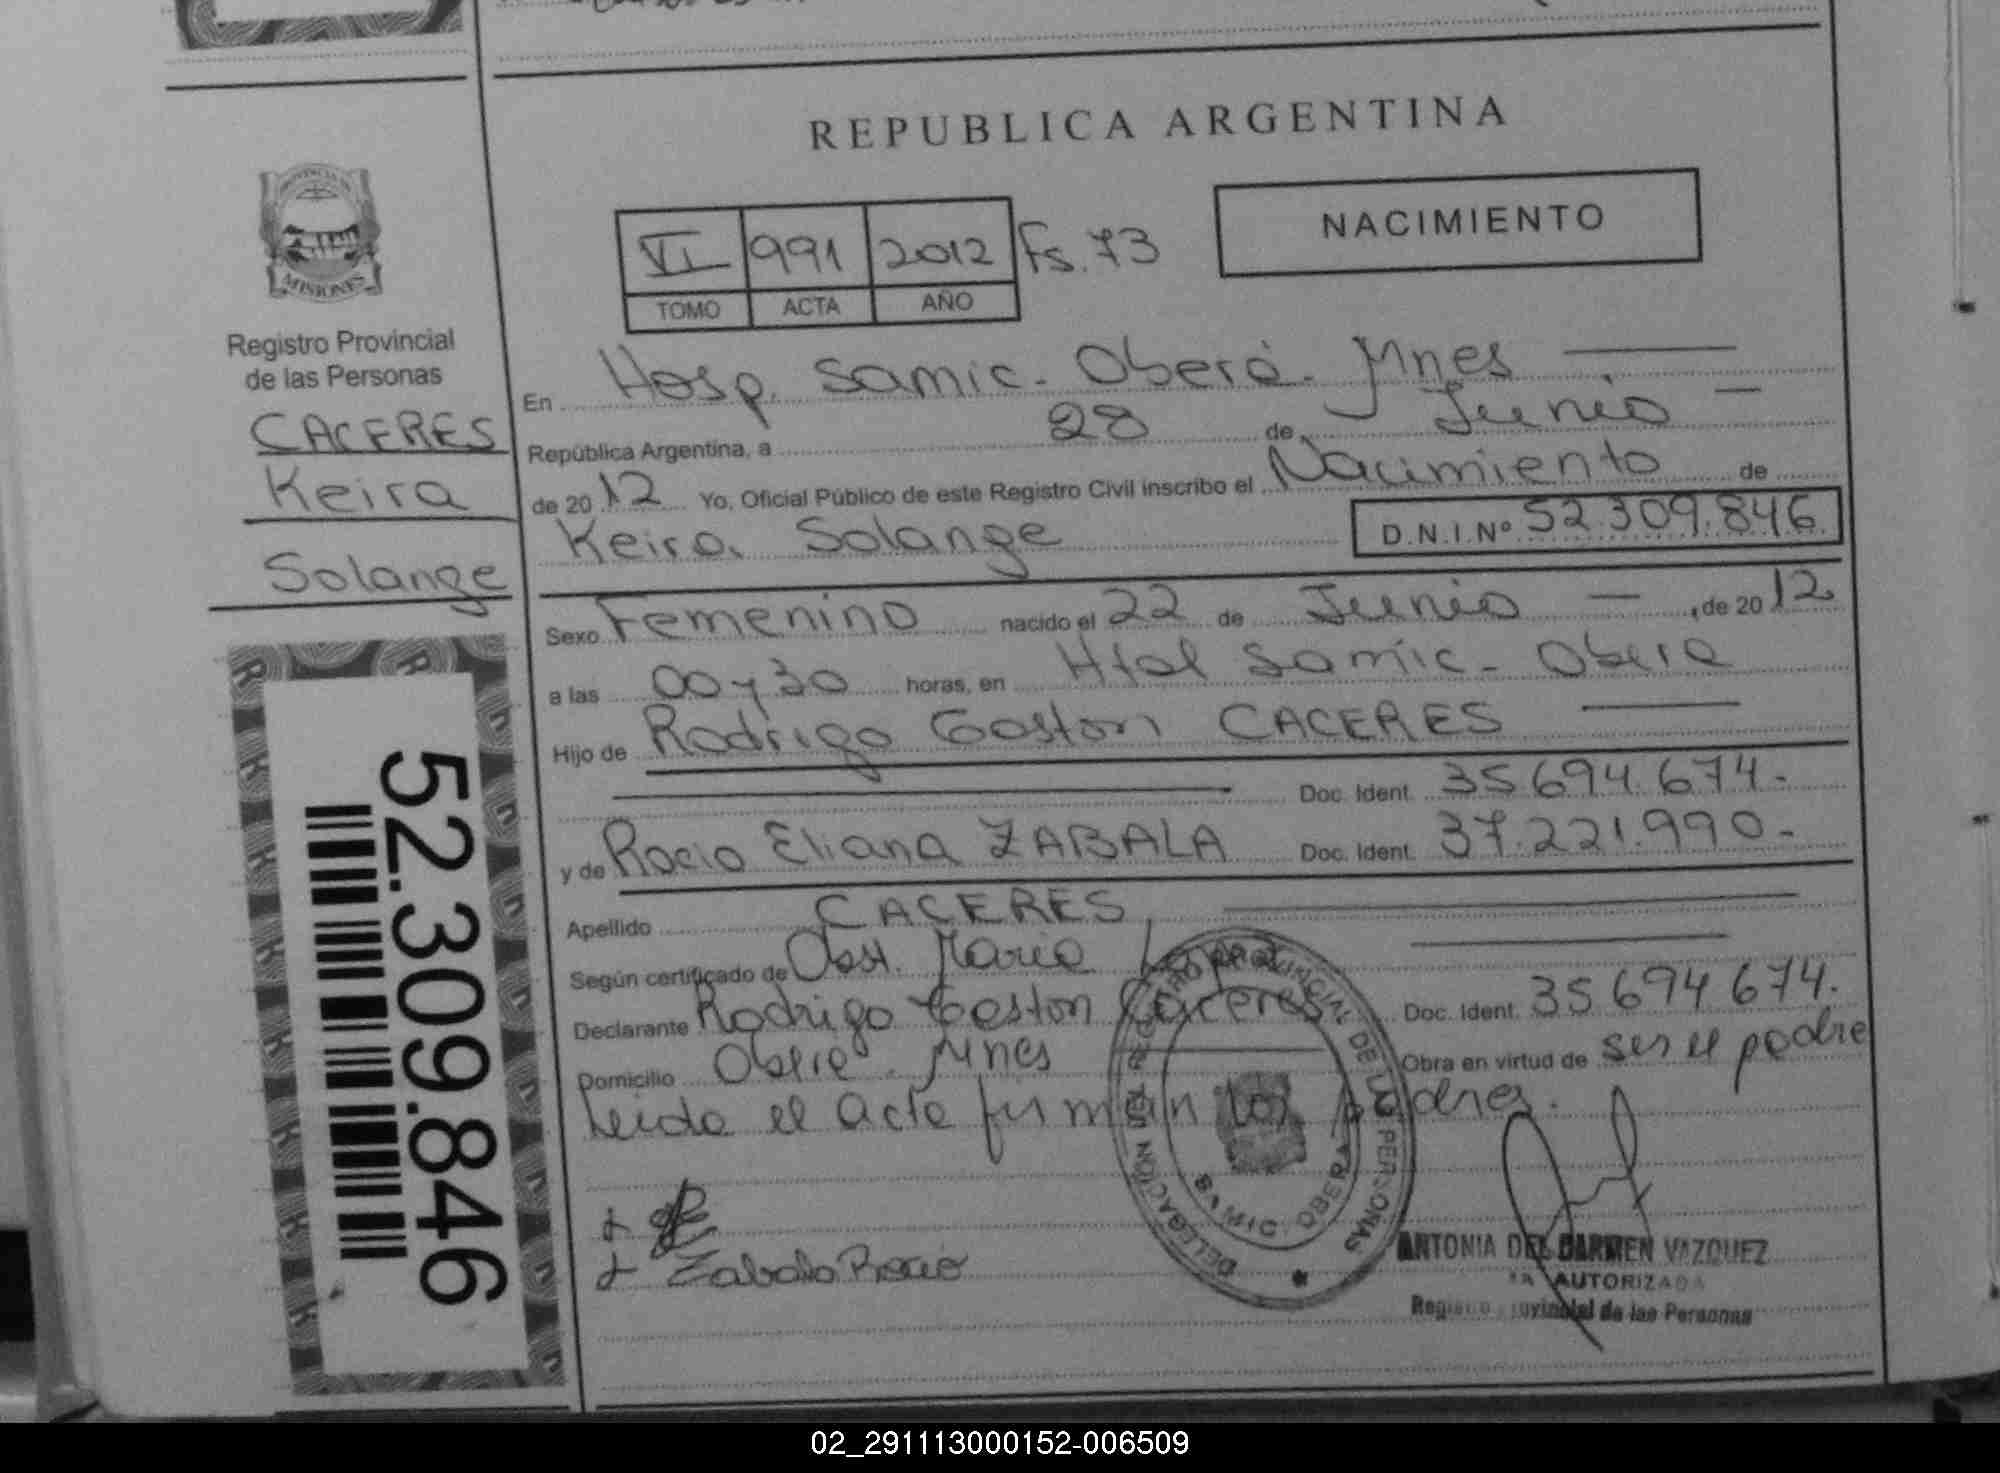 REPUBLICA ARGENTINA
PROVINCIA DE
MISIONES
Registro Provincial
de las Personas
CACERES
Keira
Solange
52.309.846
VI 991 2012 Fs. 73
TOMO ACTA AÑO
NACIMIENTO
En Hosp. Samic - Oberá - Mnes
República Argentina, a 28 de Junio
de 2012 Yo, Oficial Público de este Registro Civil inscribo el Nacimiento de
Keira Solange D.N.I.Nº 52.309.846
Sexo Femenino nacido el 22 de Junio , de 2012
a las 00 y 30 horas, en Htal Samic - Obera
Hijo de Rodrigo Gaston CACERES
Doc. Ident. 35694.674-
y de Rocio Eliana ZABALA Doc. Ident. 37.221.990-
Apellido CACERES
Según certificado de Obst. Maria Lopez
Declarante Rodrigo Gaston Caceres Doc. Ident. 35694674.
Domicilio Obera Mnes Obra en virtud de ser el padre
Leida el Acta firman los Padres.
Zabala Rocio
DELEGACION REGISTRO PROVINCIAL DE LAS PERSONAS
SAMIC. OBERA
ANTONIA DEL CARMEN VAZQUEZ
AUTORIZADA
Registro Provincial de las Personas
02_291113000152-006509